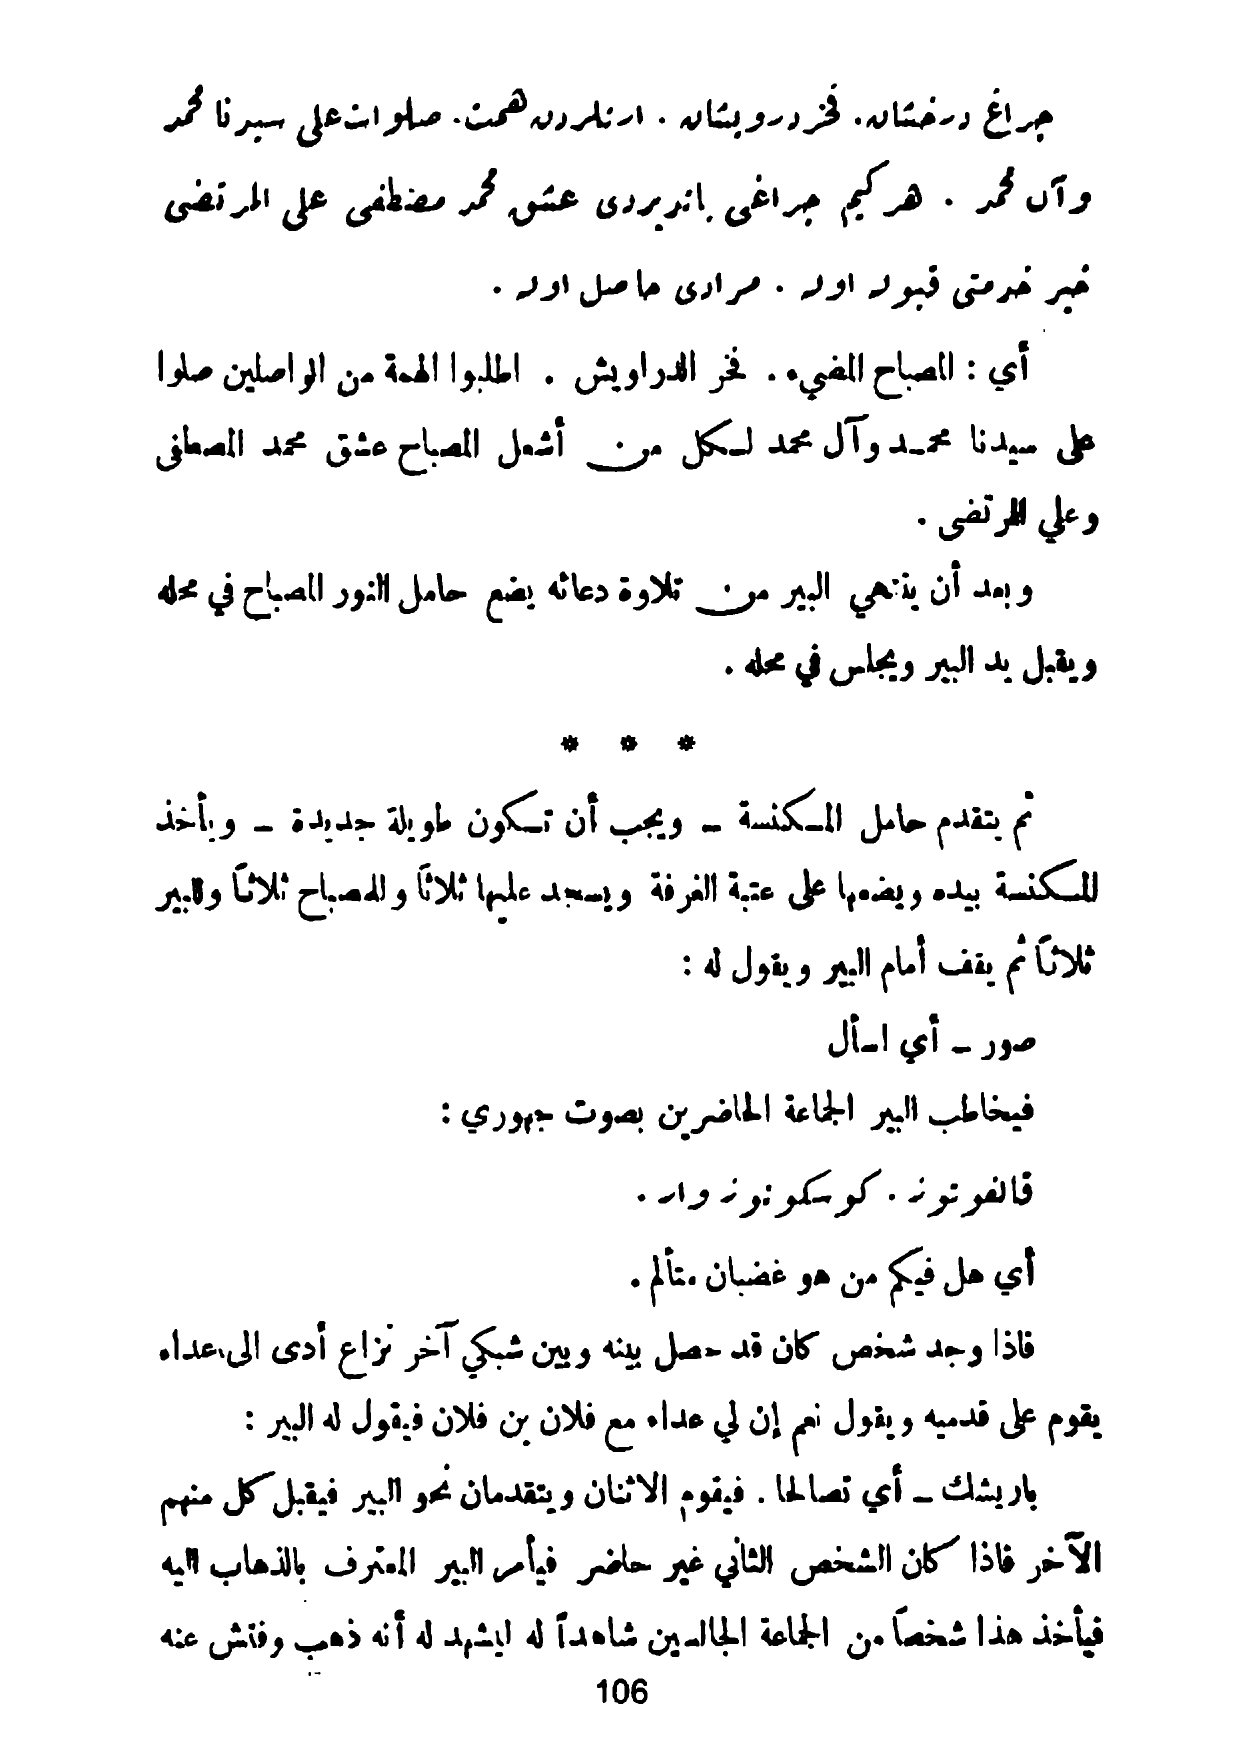 چراغ درخشان. فخر درويشان. ارنلردن همت. صلوات على سيدنا محمد
وآل محمد . هركيم چراغى ياندیردى عشق محمد مصطفى على المرتضى
خير خدمتى قبول اوله . مرادى حاصل اوله .
أي : المصباح المضيء . فخر الدراويش . اطلبوا الهمة من الواصلين صلوا
على سيدنا محمد وآل محمد لكل من أشعل المصباح عشق محمد المصطفى
وعلي المرتضى .
وبعد أن ينتهي البير من تلاوة دعائه يضع حامل النور المصباح في محله
ويقبل يد البير ويجلس في محله .
* * *
ثم يتقدم حامل المكنسة – ويجب أن تكون طويلة جديدة – ويأخذ
المكنسة بيده ويضعها على عتبة الغرفة ويسجد عليها ثلاثاً وللمصباح ثلاثاً وللبير
ثلاثاً ثم يقف أمام البير ويقول له :
صور – أي اسأل
فيخاطب البير الجماعة الحاضرين بصوت جهوري :
قالفوتوز . كوسكونوز وار .
أي هل فيكم من هو غضبان متألم .
فاذا وجد شخص كان قد حصل بينه وبين شبكي آخر نزاع أدى الى عداء
يقوم على قدميه ويقول نعم إن لي عداء مع فلان بن فلان فيقول له البير :
باريشك – أي تصالحا . فيقوم الاثنان ويتقدمان نحو البير فيقبل كل منهم
الآخر فاذا كان الشخص الثاني غير حاضر فيأمر البير المعترف بالذهاب اليه
فيأخذ هذا شخصاً من الجماعة الجالسين شاهداً له ليشهد له أنه ذهب وفتش عنه
106